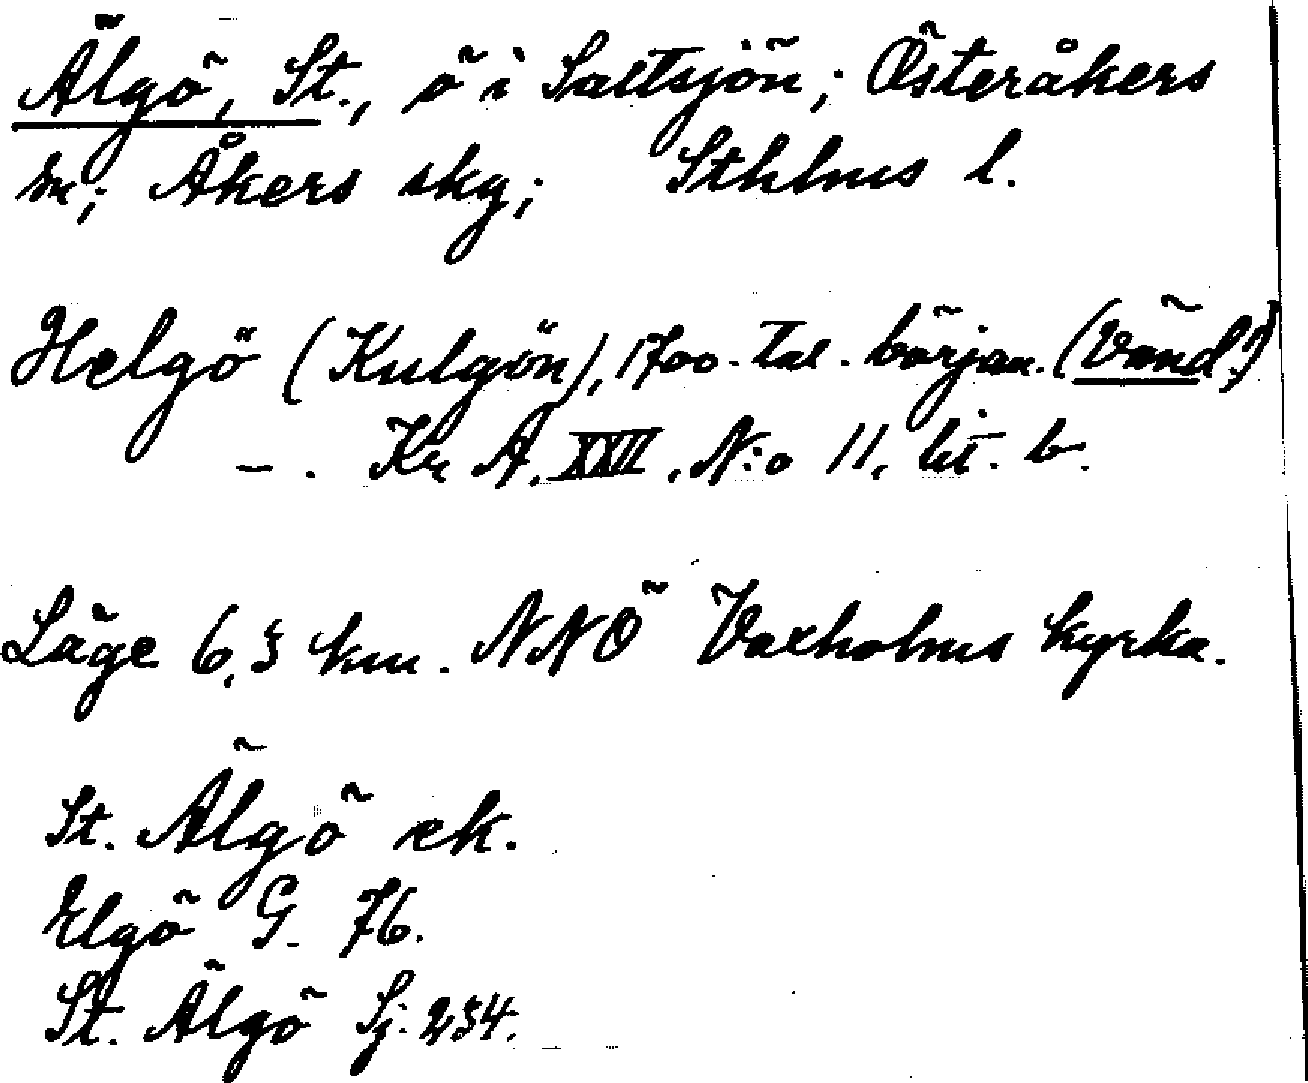 Älgö, St., ö i Saltsjön; Österåkers
sn; Åkers skg; Sthlms l.
Helgö (Kulgön), 1700-tal. början. (Vänd!)
—. Kr A, XXVI, N:o 11, lit. b.
Läge 6,5 km. NNÖ Vaxholms kyrka.
St. Älgö ek.
Elgö G. 76.
St. Älgö Sj. 234.